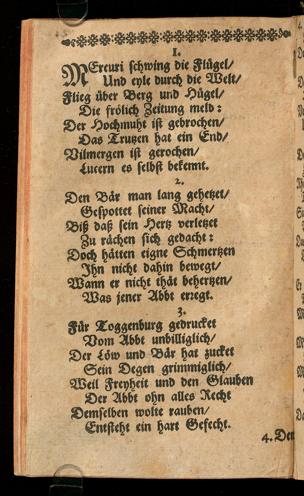 1.
MErcuri schwing die Flügel/
Und eyle durch die Welt/
Flieg über Berg und Hügel/
Die frölich Zeitung meld:
Der Hochmuht ist gebrochen/
Das Trutzen hat ein End/
Vilmergen ist gerochen/
Lucern es selbst bekennt.
2.
Den Bär man lang gehetzet/
Gespottet seiner Macht/
Biß daß sein Hertz verletzet
Zu rächen sich gedacht:
Doch hätten eigne Schmertzen
Jhn nicht dahin bewegt/
Wann er nicht thät behertzen/
Was jener Abbt erregt.
3.
Für Toggenburg gedrucket
Vom Abbt unbilliglich/
Der Löw und Bär hat zucket
Sein Degen grimmiglich/
Weil Freyheit und den Glauben
Der Abbt ohn alles Recht
Demselben wolte rauben/
Entsteht ein hart Gefecht.
4. Den